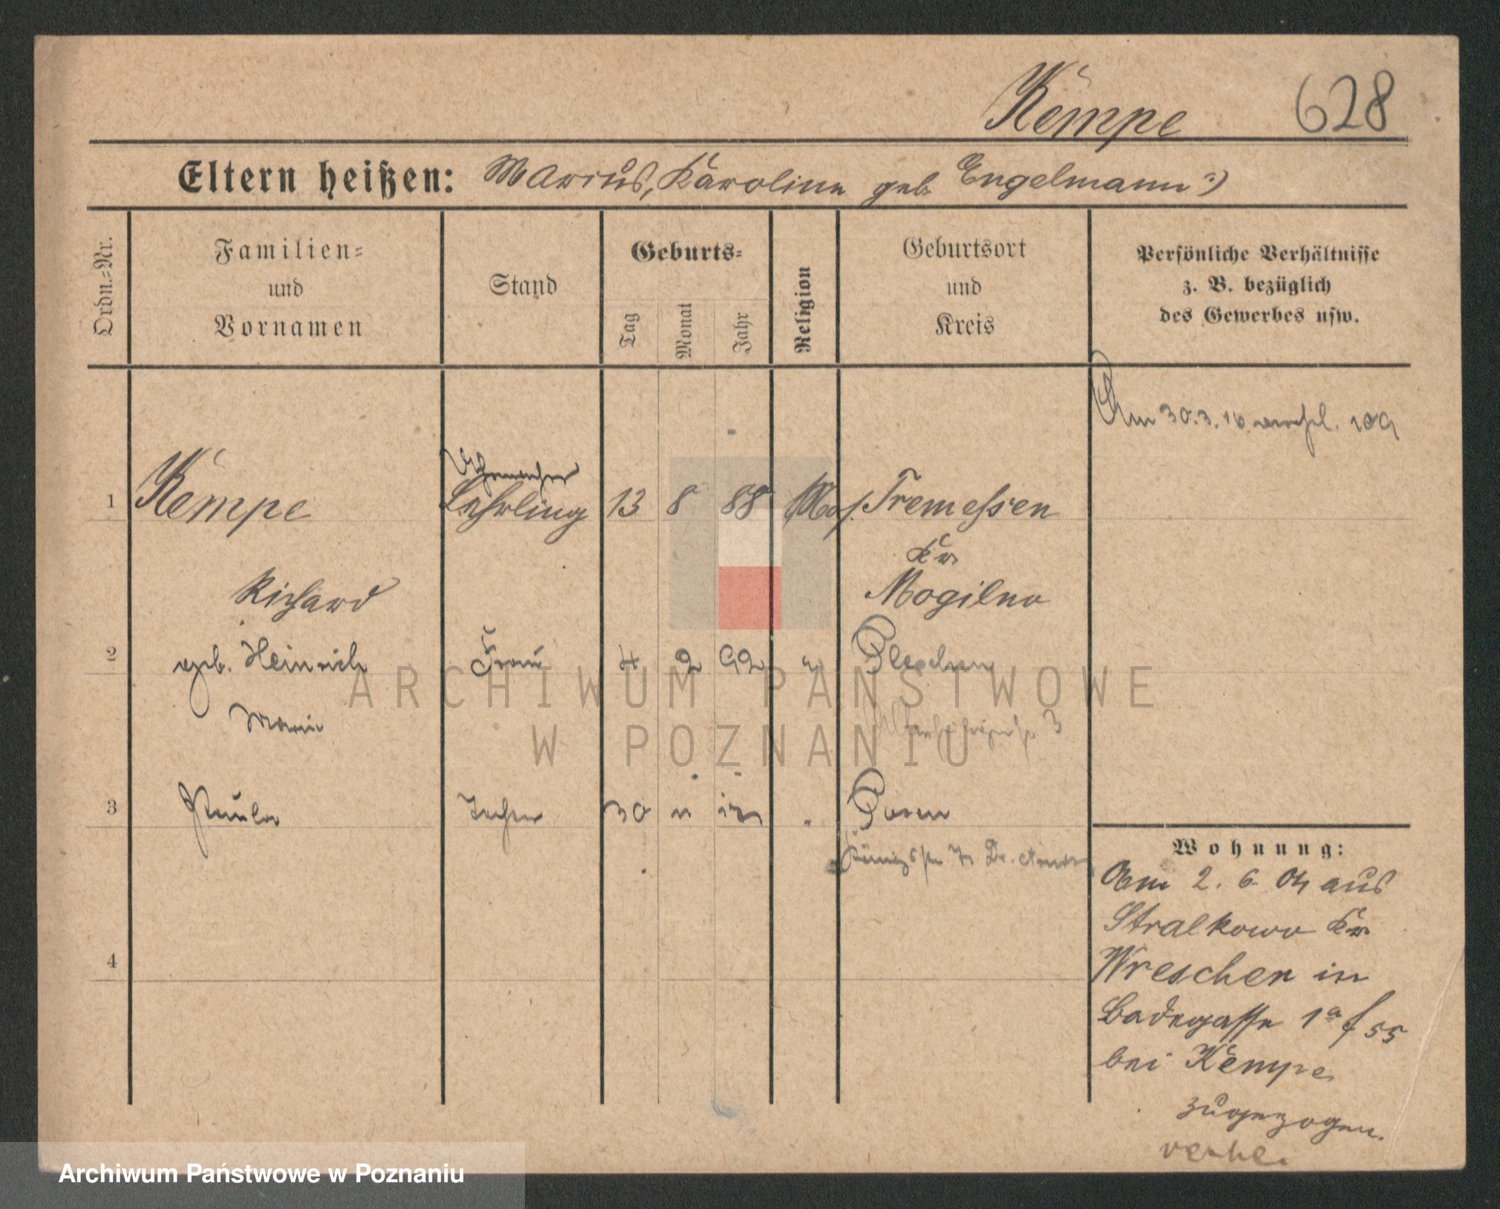 Kempe 628
Eltern heißen: Marius, Karoline geb. Engelmann
Ordn.-Nr.
Familien-
und
Vornamen
Stand
Geburts-
Tag
Monat
Jahr
Religion
Geburtsort
und
Kreis
Persönliche Verhältnisse
z. B. bezüglich
des Gewerbes usw.
Am 30.3.16
Uhrmacher
1 Kempe Lehrling 13 8 88 Tremessen
Kr
Richard Mogilno
2 geb. Heinrich Frau 4 2 92 " Pleschen
Marie
3 Paula Tochter 30 11 Posen
4
Wohnung:
Am 2. 6. 04 aus
Stralkowo Kr
Wreschen in
Badegasse 1a f 55
bei Kempe
zugezogen.
ARCHIWUM PAŃSTWOWE
W POZNANIU
Archiwum Państwowe w Poznaniu